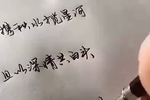 携一抔水揽星河
且以深情共白头